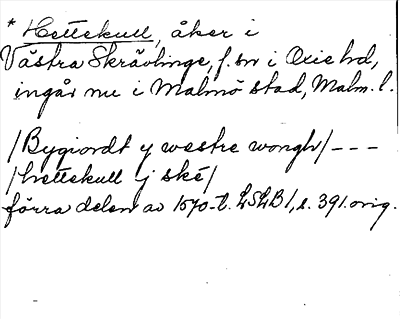 * Hettekull, åker i
Västra Skrävlinge, f. sn i Oxie hd,
ingår nu i Malmö stad, Malm. l.
/Bygiordt y westre wongh/ – – –
/hettekull y ske/
förra delen av 1570-t. LSLB 1, s. 391. orig.